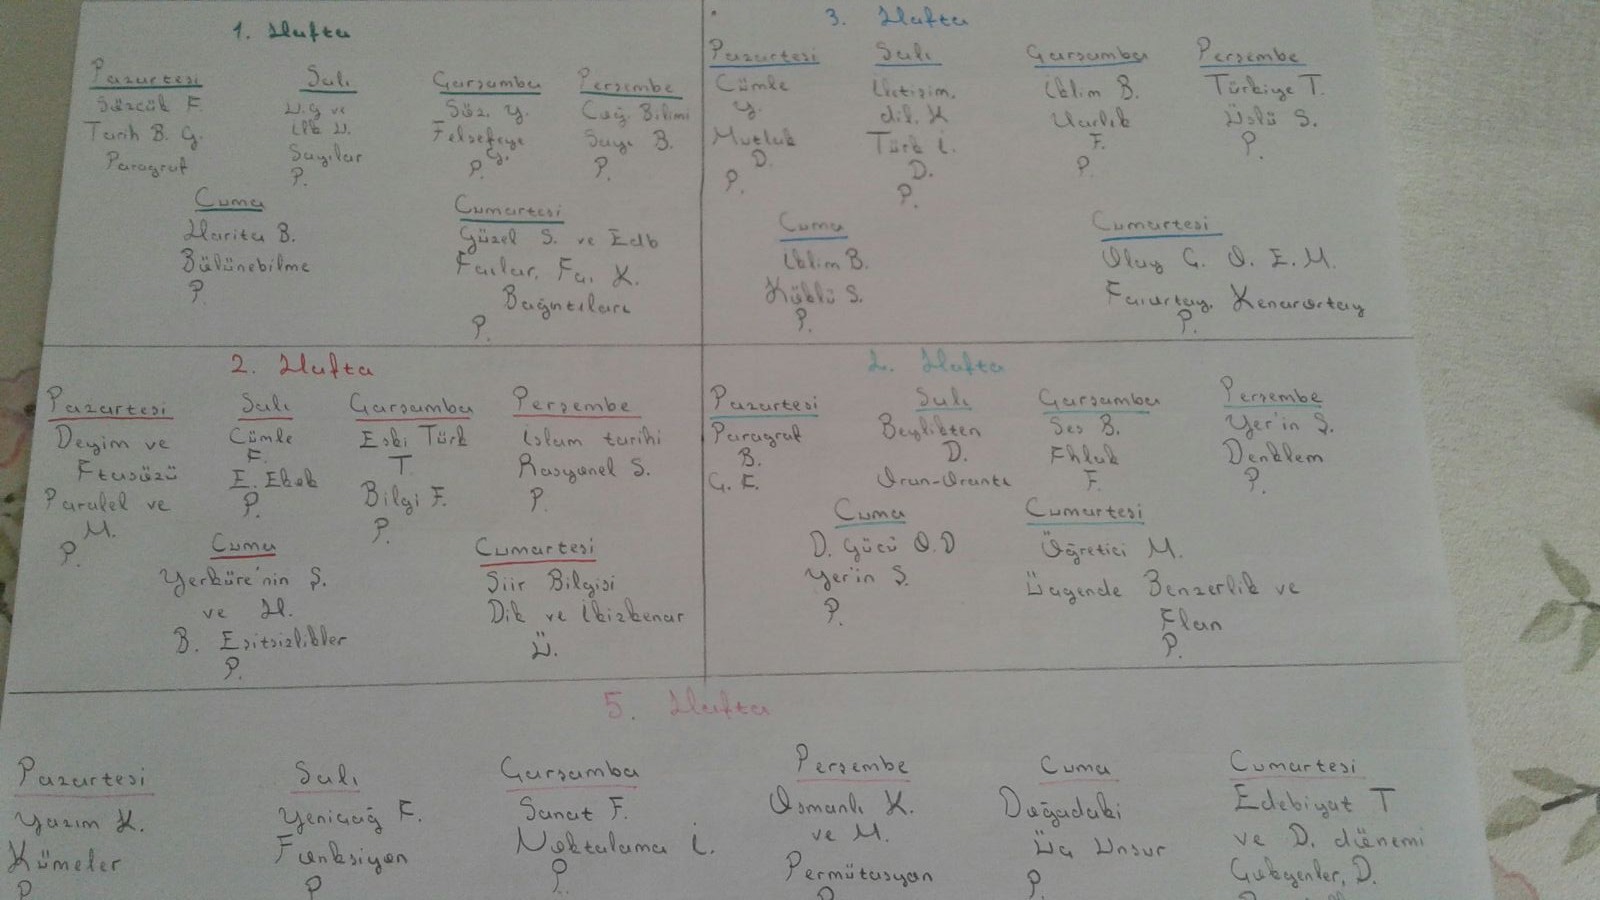 1. Hafta
Pazartesi
Sözcük A.
Tarih B. G.
Paragraf
Salı
U.g ve
İlk U.
Sayılar
P.
Çarşamba
Söz. Y.
Felsefeye
G.
P.
Perşembe
Coğ. Bilimi
Sayı B.
P.
Cuma
Harita B.
Bölünebilme
P.
Cumartesi
Güzel S. ve Edb
Açılar, Aç. K.
Bağıntıları
P.
2. Hafta
Pazartesi
Deyim ve
Atasözü
Paralel ve
M.
P.
Salı
Cümle
A.
E. Ekok
P.
Çarşamba
Eski Türk
T.
Bilgi F.
P.
Perşembe
İslam tarihi
Rasyonel S.
P.
Cuma
Yerküre'nin Ş.
ve H.
B. Eşitsizlikler
P.
Cumartesi
Şiir Bilgisi
Dik ve İkizkenar
Ü.
3. Hafta
Pazartesi
Cümle
Y.
Mutlak
D.
P.
Salı
İletişim,
dil, K
Türk İ.
D.
P.
Çarşamba
İklim B.
Varlık
F.
P.
Perşembe
Türkiye T.
Üslü S.
P.
Cuma
İklim B.
Köklü S.
P.
Cumartesi
Olay Ç. O. E. M.
Açıortay, Kenarortay
P.
4. Hafta
Pazartesi
Paragraf
B.
Ç. A.
Salı
Beylikten
D.
Oran-Orantı
Çarşamba
Ses B.
Ahlak
F.
Perşembe
Yer'in Ş.
Denklem
P.
Cuma
D. Gücü O.D
Yer'in Ş.
P.
Cumartesi
Öğretici M.
Üçgende Benzerlik ve
Alan
P.
5. Hafta
Pazartesi
Yazım K.
Kümeler
P
Salı
Yeniçağ A.
Fonksiyon
P
Çarşamba
Sanat F.
Noktalama İ.
P.
Perşembe
Osmanlı K.
ve M.
Permütasyon
P
Cuma
Doğadaki
Üç Unsur
P.
Cumartesi
Edebiyat T
ve D. dönemi
Çokgenler, D.